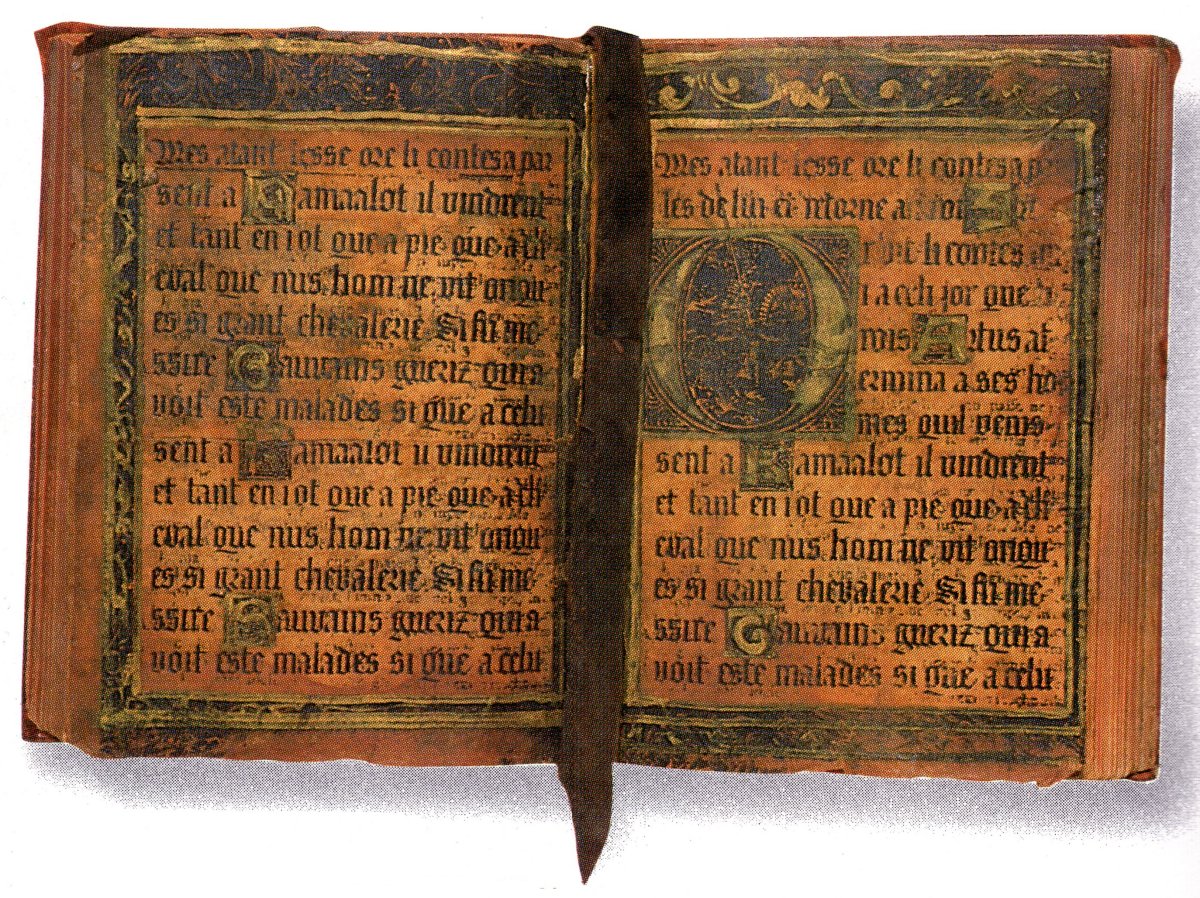 Mes atant lesse ore li contes a par
sent a Kamaalot il vindrent
et tant en i ot que a pie que a ch
eval que nus hom ne vit onqu
es si grant chevalerie Si fu me
ssire Gauvains gueriz qui a
voit este malades si que a celu
sent a Kamaalot il vindrent
et tant en i ot que a pie que a ch
eval que nus hom ne vit onqu
es si grant chevalerie Si fu me
ssire Gauvains gueriz qui a
voit este malades si que a celu
Mes atant lesse ore li contes a par
les de lui et retorne au roi Art
li contes
i a celi jor que
rois Artus at
ermina a ses ho
mes quil venis
sent a Kamaalot il vindrent
et tant en i ot que a pie que a ch
eval que nus hom ne vit onqu
es si grant chevalerie Si fu me
ssire Gauvains gueriz qui a
voit este malades si que a celu